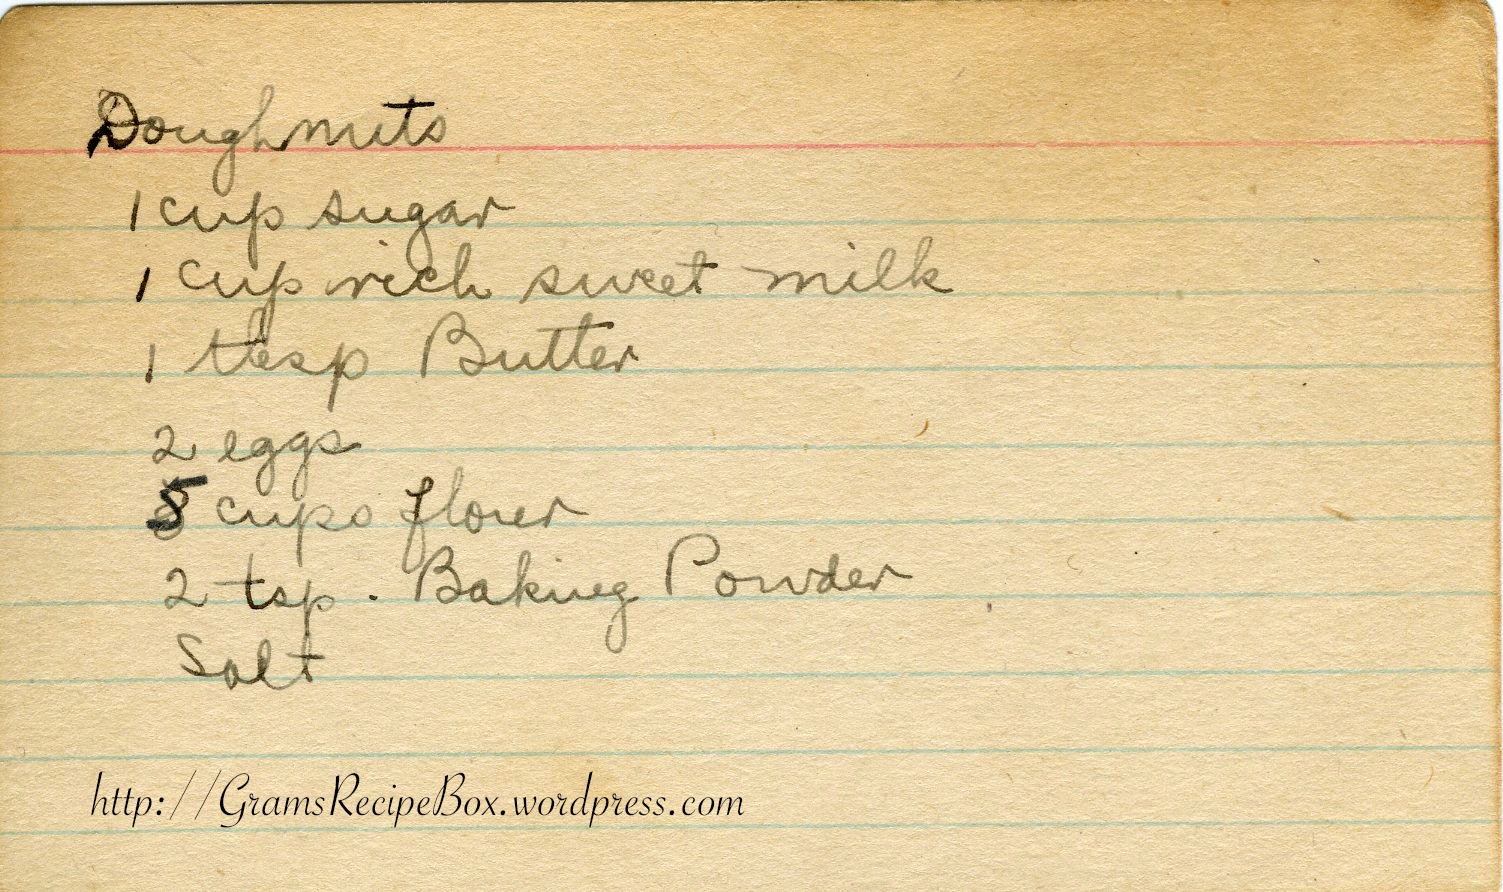 Doughnuts
1 cup sugar
1 cup rich sweet milk
1 tbsp Butter
2 eggs
5 cups flour
2 tsp. Baking Powder
Salt
http://GramsRecipeBox.wordpress.com